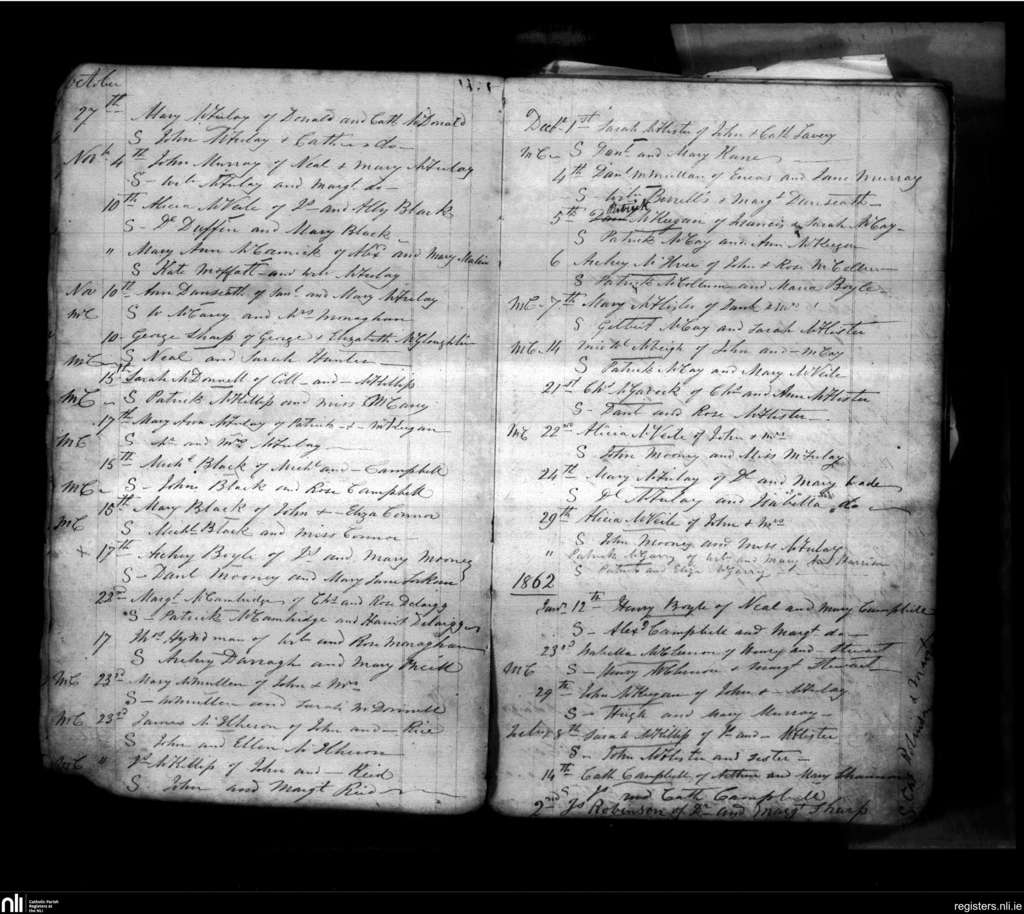 October
27th Mary McAulay of Donald and Cath McDonald
S John McAulay & Cath do
Novr 4th John Murray of Neal & Mary McAulay
S - Wm McAulay and Margt do -
10th Alicia McVeile of Ds and Ally Black
S - Ds Duffin and Mary Black
" Mary Ann McCamick of Alexr and Mary
S Kate Moffatt and Wm McAulay
Nov 10th Ann Danseath of Saml and Mary McAulay
MC S W McCarry and Mrs Monaghan
10 George Sharp of George & Elizabeth McGloughlin
MC S Neal and Sarah Hunter
15th Sarah McDonnell of Coll - and - McKillip
MC S Patrick McKillip and Miss McCarry
17th Mary Ann McAulay of Patrick - & - McKeegan
MC S Mr and Mrs McAulay
15th Michl Black of Michl and - Campbell
MC S - John Black and Rose Campbell
15th Mary Black of John & - Eliza Connor
MC S Michl Black and Miss Connor
x 17th Archey Boyle of Ds and Mary Mooney
S - Danl Mooney and Mary Jane
22nd Margt McCambridge of Chs and Rose Delargy
S - Patrick McCambridge and Harriot Delargy
17 Thos Hyndman of Wm and Rose Monaghan
S Archey Darragh and Mary
MC 23rd Mary McMullen of John & Mrs
S - McMullen and Sarah McDonnell
MC 23rd James McIlheron of John and - Rice
S John and Ellen McIlheron
MC " McKillip of John and - Reid
S John and Margt Reid
Decr 1st Sarah McAlister of John & Cath Lavey
MC S Danl and Mary Kane
4th Danl McMullan of Eneas and Jane Murray
S - & Margt Danseath
5th Patrick McKeegan of Francis & Sarah McCay
S Patrick McCay and Ann McKeegan
6 Archey of John & Rose McCollum
S Patrick McCollum and Maria Boyle
MC 7th Mary McAlister of & Mrs
S Gilbert McCay and Sarah McAlister
MC 14 of John and - McCay
S Patrick McCay and Mary McVeile
21st Chs of Chs and Ann McAlister
S - Danl and Rose McAlister
MC 22nd Alicia McVeile of John & Mrs
S - John Mooney and Miss McAulay
24th Mary McAulay of Ds and Mary Wade
S Ds McAulay and Isabella do
29th Alicia McVeile of John & Mrs
S John Mooney and Miss McAulay
" Patrick McGarry of Wm and Mary Ann Harrison
S Patrick and Eliza McGarry
1862
Janr 12th Henry Boyle of Neal and Mary Campbell
S - Alexr Campbell and Margt do -
23rd Isabella of Henry and - Stewart
MC S - Henry and Margt Stewart
29th John McKeegan of John & - McAulay
S - Hugh and Mary Murray -
8th Sarah McKillip of Ds and - McAlister
S - John McAlister and sister -
14th Cath Campbell of Arthur and Mary
S Js and Cath Campbell
2nd Js Robinson of Ds and Margt Sharp
Robinson & Margt
nli
Catholic Parish
Registers at
the NLI
registers.nli.ie